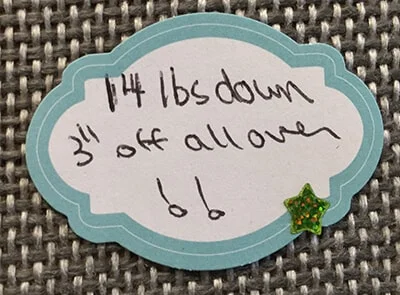 14 lbs down
3" off all over
!!